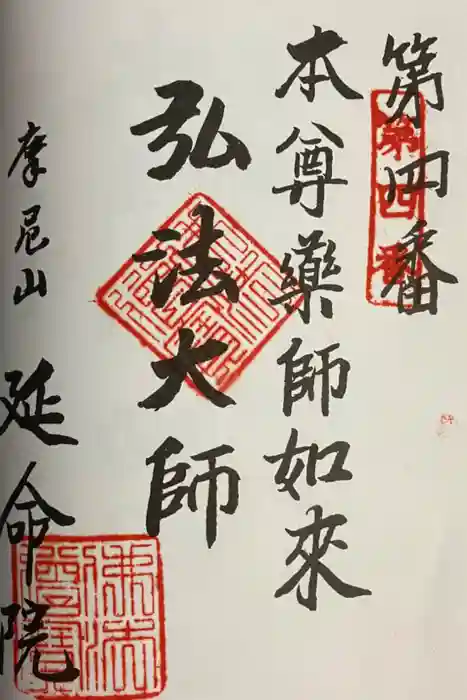 第四番
第四番
本尊藥師如來
弘法大師
摩尼山
延命院